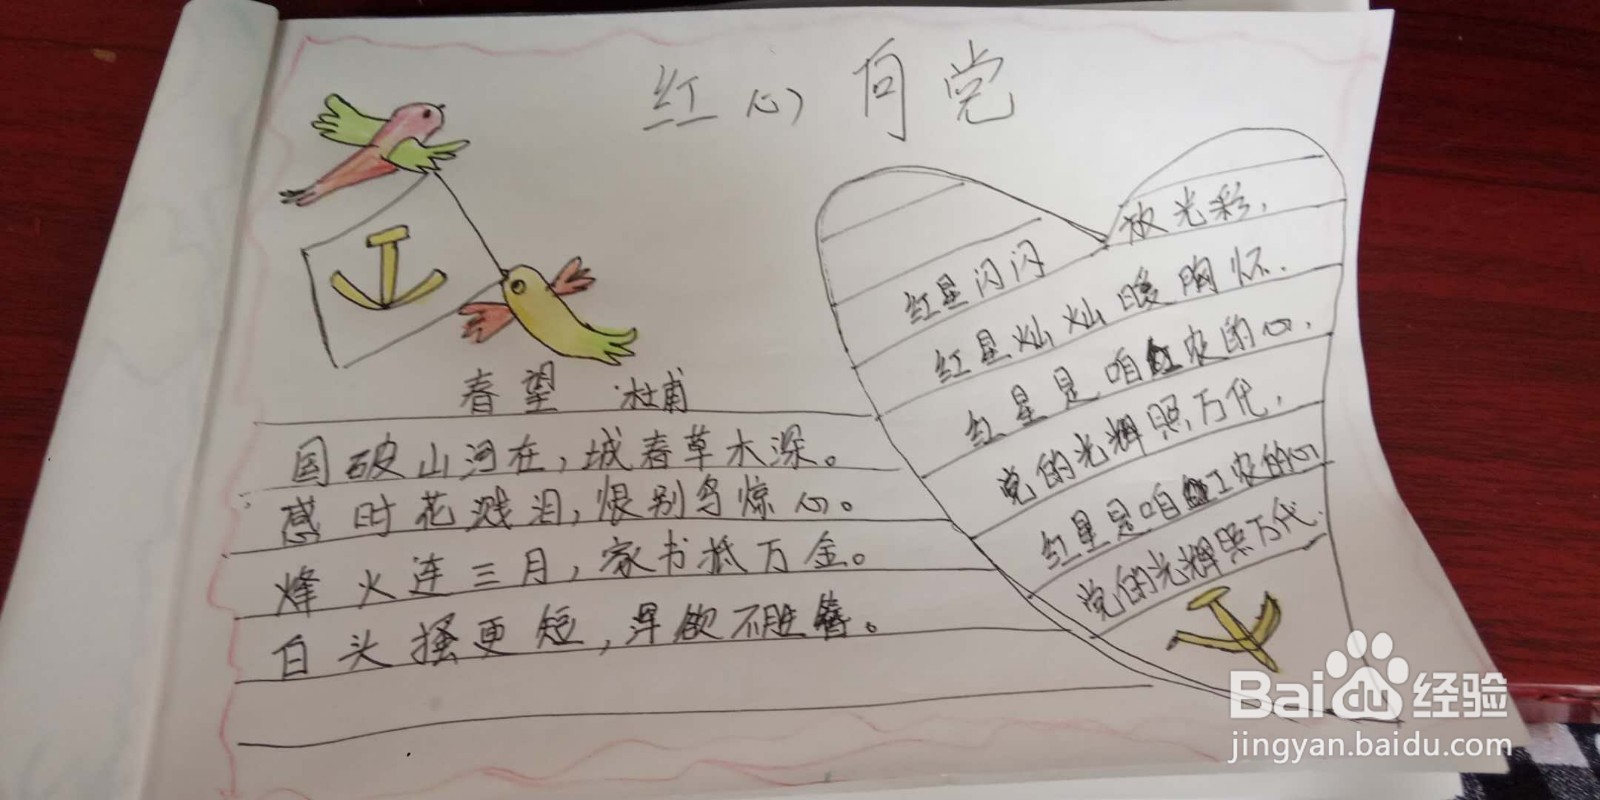 红心向党
春望 杜甫
国破山河在，城春草木深。
感时花溅泪，恨别鸟惊心。
烽火连三月，家书抵万金。
白头搔更短，浑欲不胜簪。
红星闪闪放光彩，
红星灿灿暖胸怀．
红星是咱红农的心，
党的光辉照万代，
红星是咱工农的心
党的光辉照万代．
Baidu经验
jingyan.baidu.com